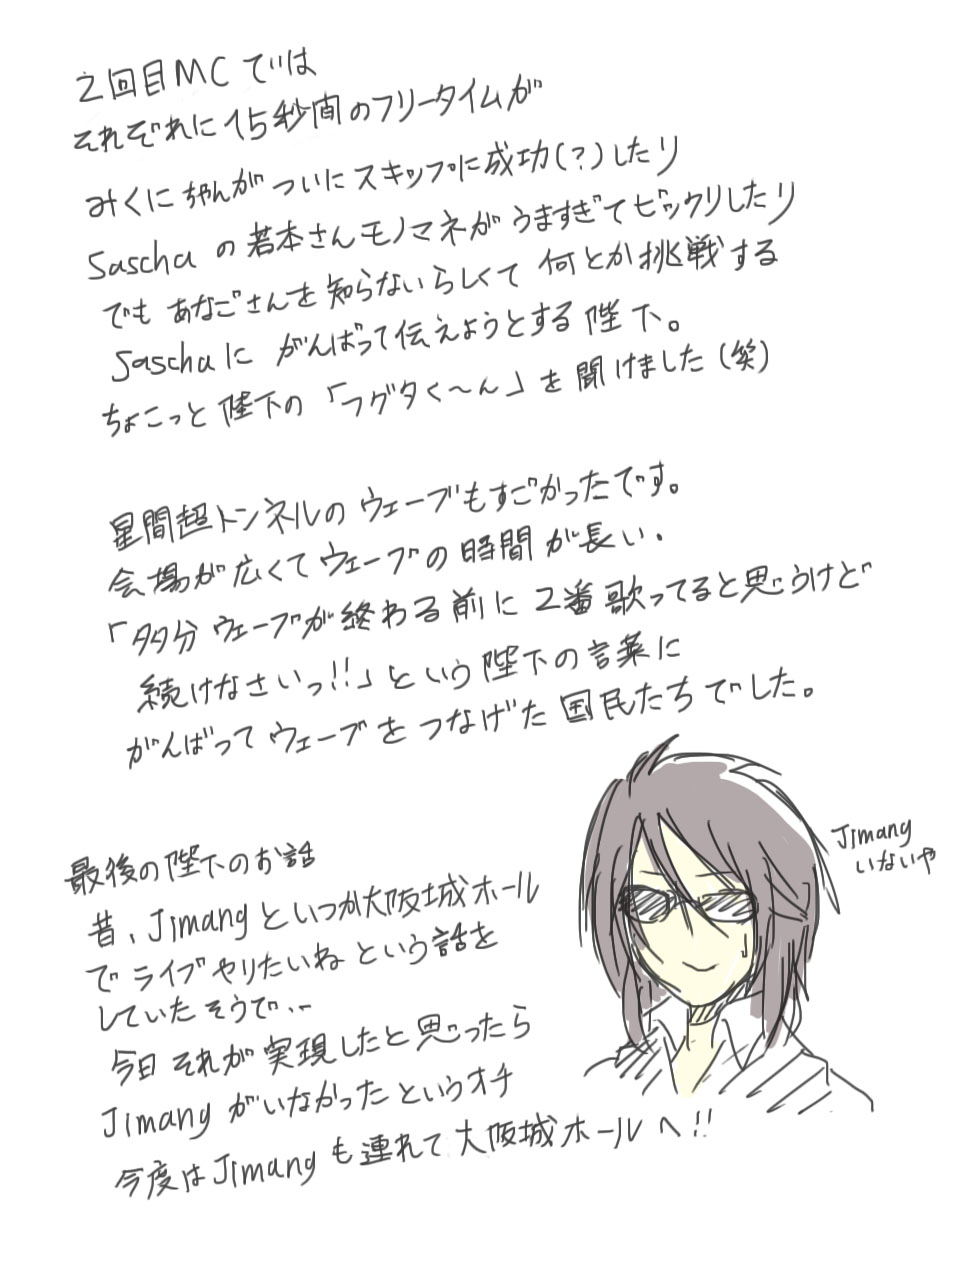 2回目MCでは
それぞれに15秒間のフリータイムが
みくにちゃんがついにスキップに成功(?)したり
Saschaの若本さんモノマネがうますぎてビックリしたり
でもあなごさんを知らないらしくて何とか挑戦する
Saschaにがんばって伝えようとする陛下。
ちょこっと陛下の「フグタく〜ん」を聞けました(笑)
星間超トンネルのウェーブもすごかったです。
会場が広くてウェーブの時間が長い.
「多分ウェーブが終わる前に2番歌ってると思うけど
続けなさいっ!!」という陛下の言葉に
がんばってウェーブをつなげた国民たちでした。
Jimang
いないや
最後の陛下のお話
昔、Jimangといつか大阪城ホール
でライブやりたいねという話を
していたそうで...
今日それが実現したと思ったら
Jimangがいなかったというオチ
今度はJimangも連れて大阪城ホールへ!!